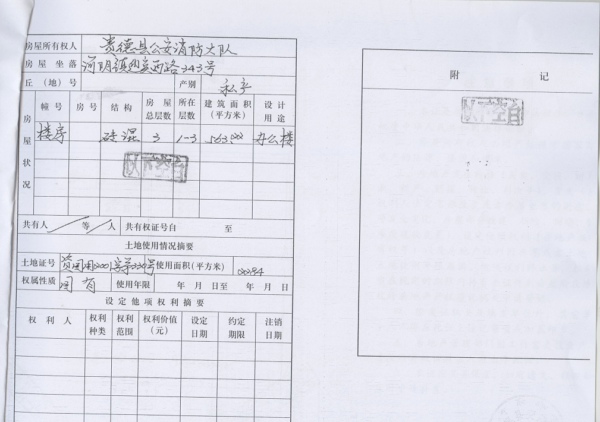 房屋所有权人 贵德县公安消防大队
房屋坐落 河阴镇迎宾西路343号
丘（地）号 产别 私产
房屋状况
幢号 房号 结构 房屋总层数 所在层数 建筑面积（平方米） 设计用途
楼房 砖混 3 1-3 563.00 办公楼
共有人 等 人 共有权证号自 至
土地使用情况摘要
土地证号 贵国用2001字第236号 使用面积（平方米）
权属性质 国有 使用年限 年 月 日至 年 月 日
设定他项权利摘要
权利人 权利种类 权利范围 权利价值（元） 设定日期 约定期限 注销日期
附 记